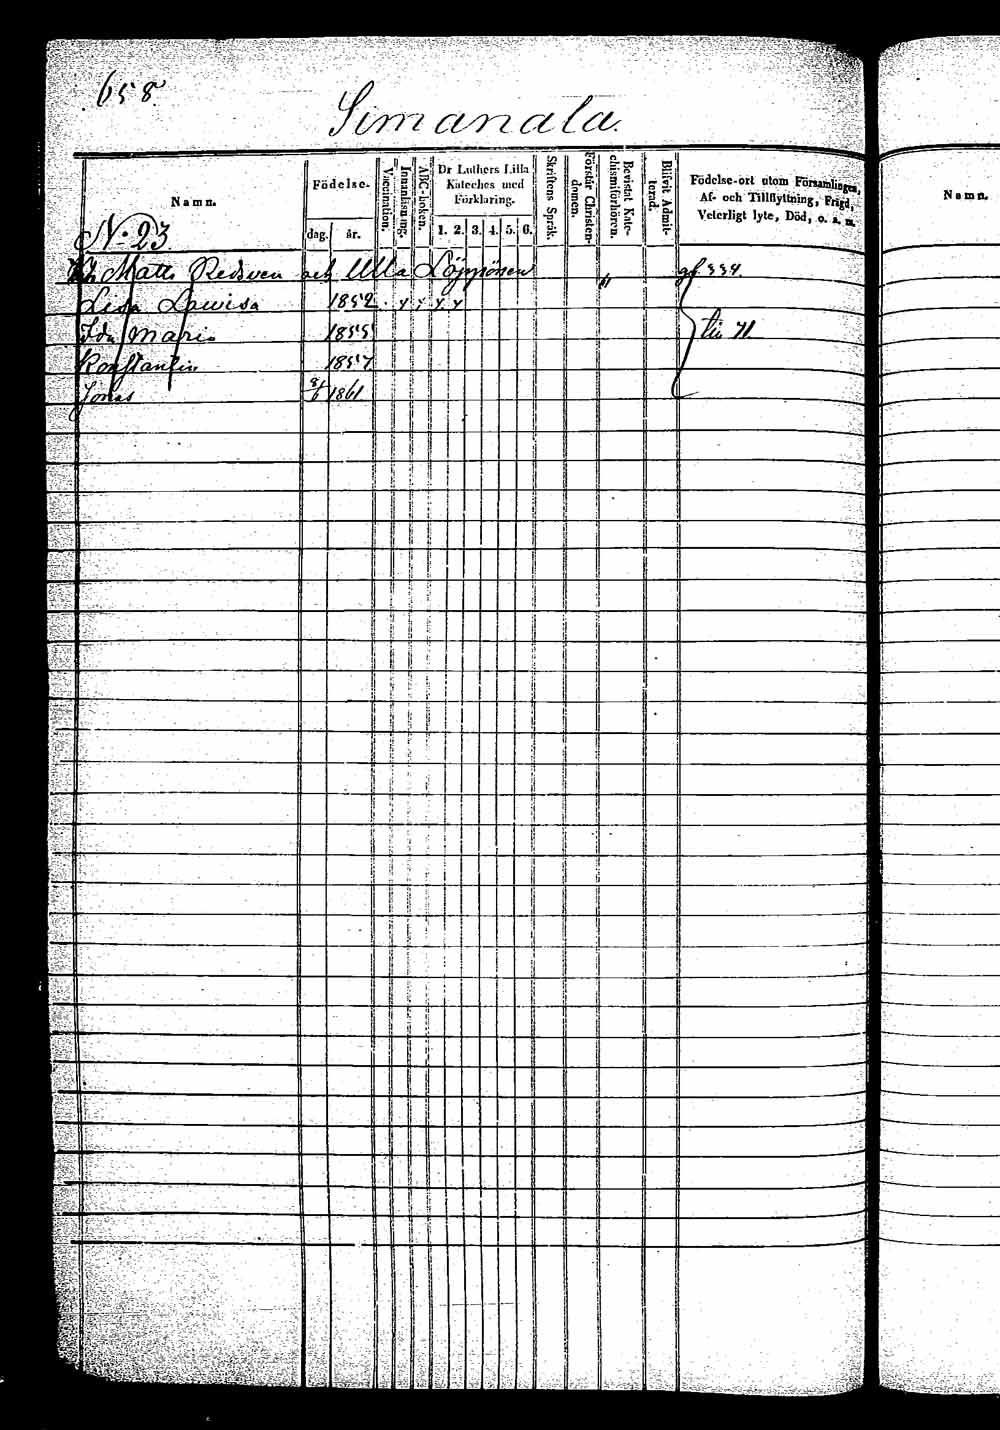 658.
Simanala.
Namn.
Födelse-
dag. år.
Vaccination.
Innanläsning.
ABC-boken.
Dr Luthers Lilla
Kateches med
Förklaring.
1. 2. 3. 4. 5. 6.
Skriftens Språk.
Förstår Christen-
domen.
Bevistat Kate-
chismiförhören.
Blifvit Admit-
terad.
Födelse-ort utom Församlingen,
Af- och Tillflyttning, Frägd,
Veterligt lyte, Död, o. s. m.
Namn.
N:o 23.
Matts Redsven och Ulla Löppönen 334.
Lisa Lowisa 1852
Ida Maria 1855
Konstantin 1857
Jonas 8/6 1861